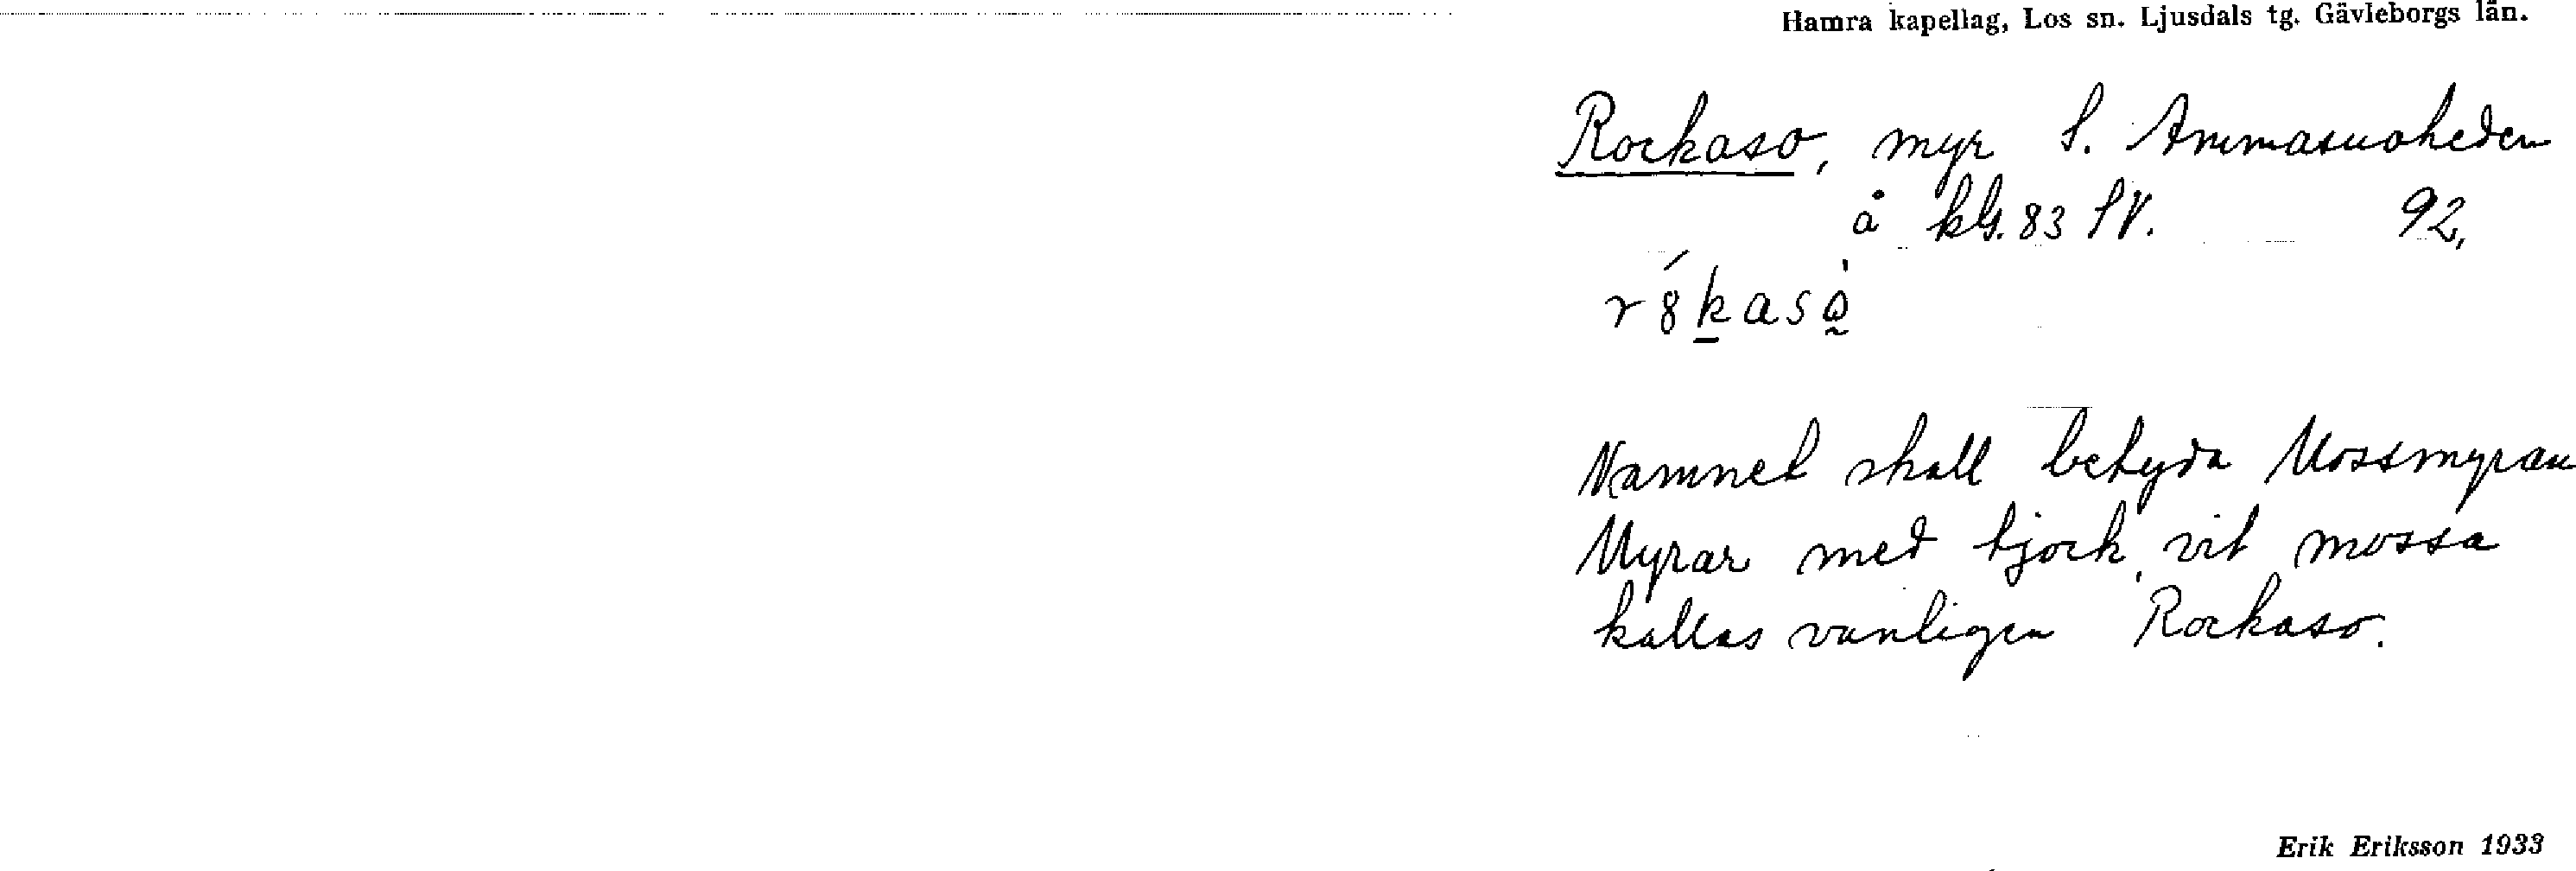 Hamra kapellag, Los sn. Ljusdals tg. Gävleborgs län.
Rockaso, myr S. Ammasuoheden
å kbl. 83 SV. 92,
r8kasò
Namnet skall betyda Mossmyran
Myrar med tjock, vit mossa
kallas vanligen Rockaso.
Erik Eriksson 1933